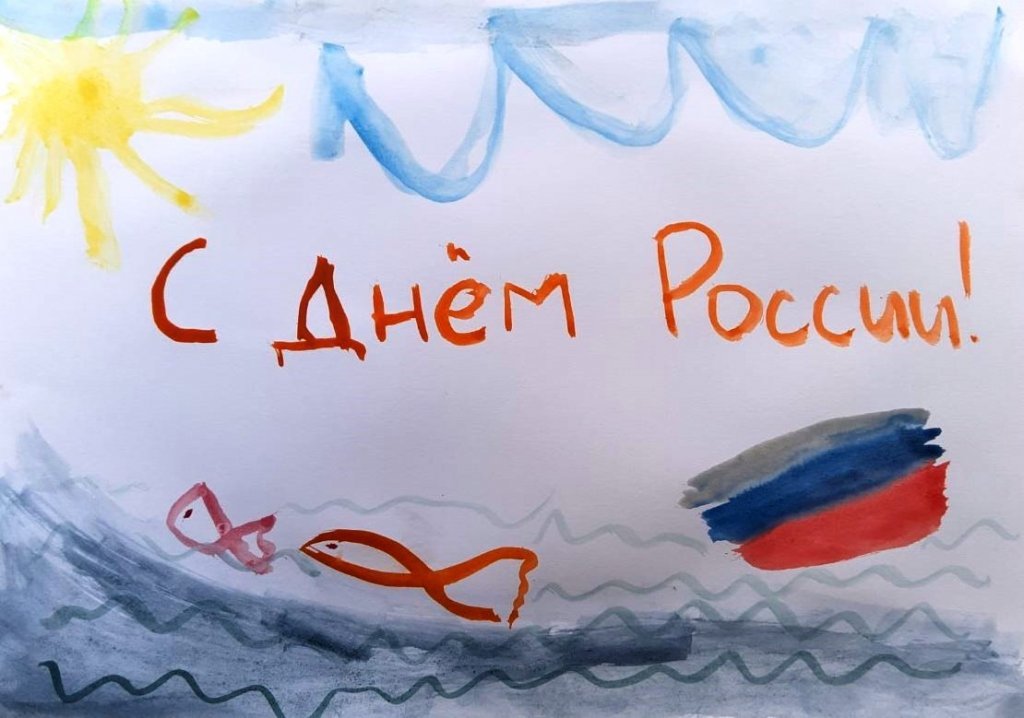 С Днём России!